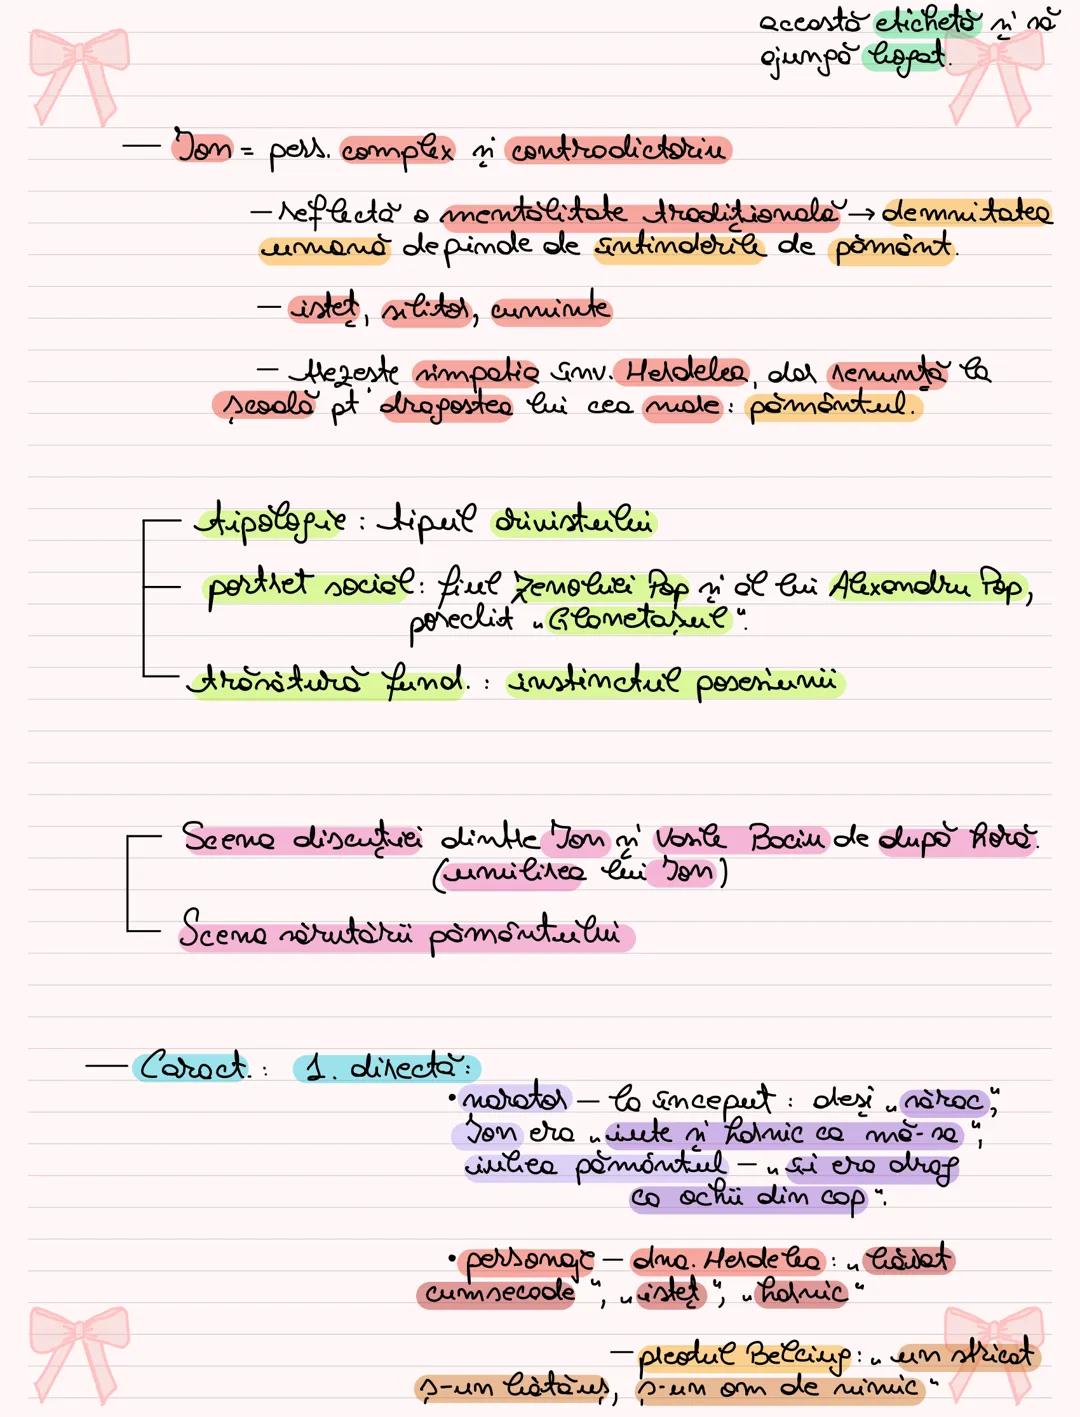 această etichetă și să
ajungă bogat.
— Ion = pers. complex și contradictoriu
— reflectă o mentalitate tradițională → demnitatea
umană depinde de întinderile de pământ.
— isteț, silitor, cuminte
— trezește simpatia înv. Herdelea, dar renunță la
școală pt dragostea lui cea mare: pământul.
tipologie : tipul arivistului
portret social: fiul Zenobiei Pop și al lui Alexandru Pop,
poreclit „Glanetașul".
trăsătură fund. : instinctul posesiunii
Scena discuției dintre Ion și Vasile Baciu de după horă.
(umilirea lui Ion)
Scena sărutării pământului
— Caract. : 1. directă:
• narator — la început : deși „sărac",
Ion era „iute și harnic ca mă-sa",
iubea pământul — „îi era drag
ca ochii din cap".
• personaje — dna. Herdelea : „băiat
cumsecade", „isteț", „harnic"
— preotul Belciug: „un stricat
ș-un bătăuș, ș-un om de nimic"